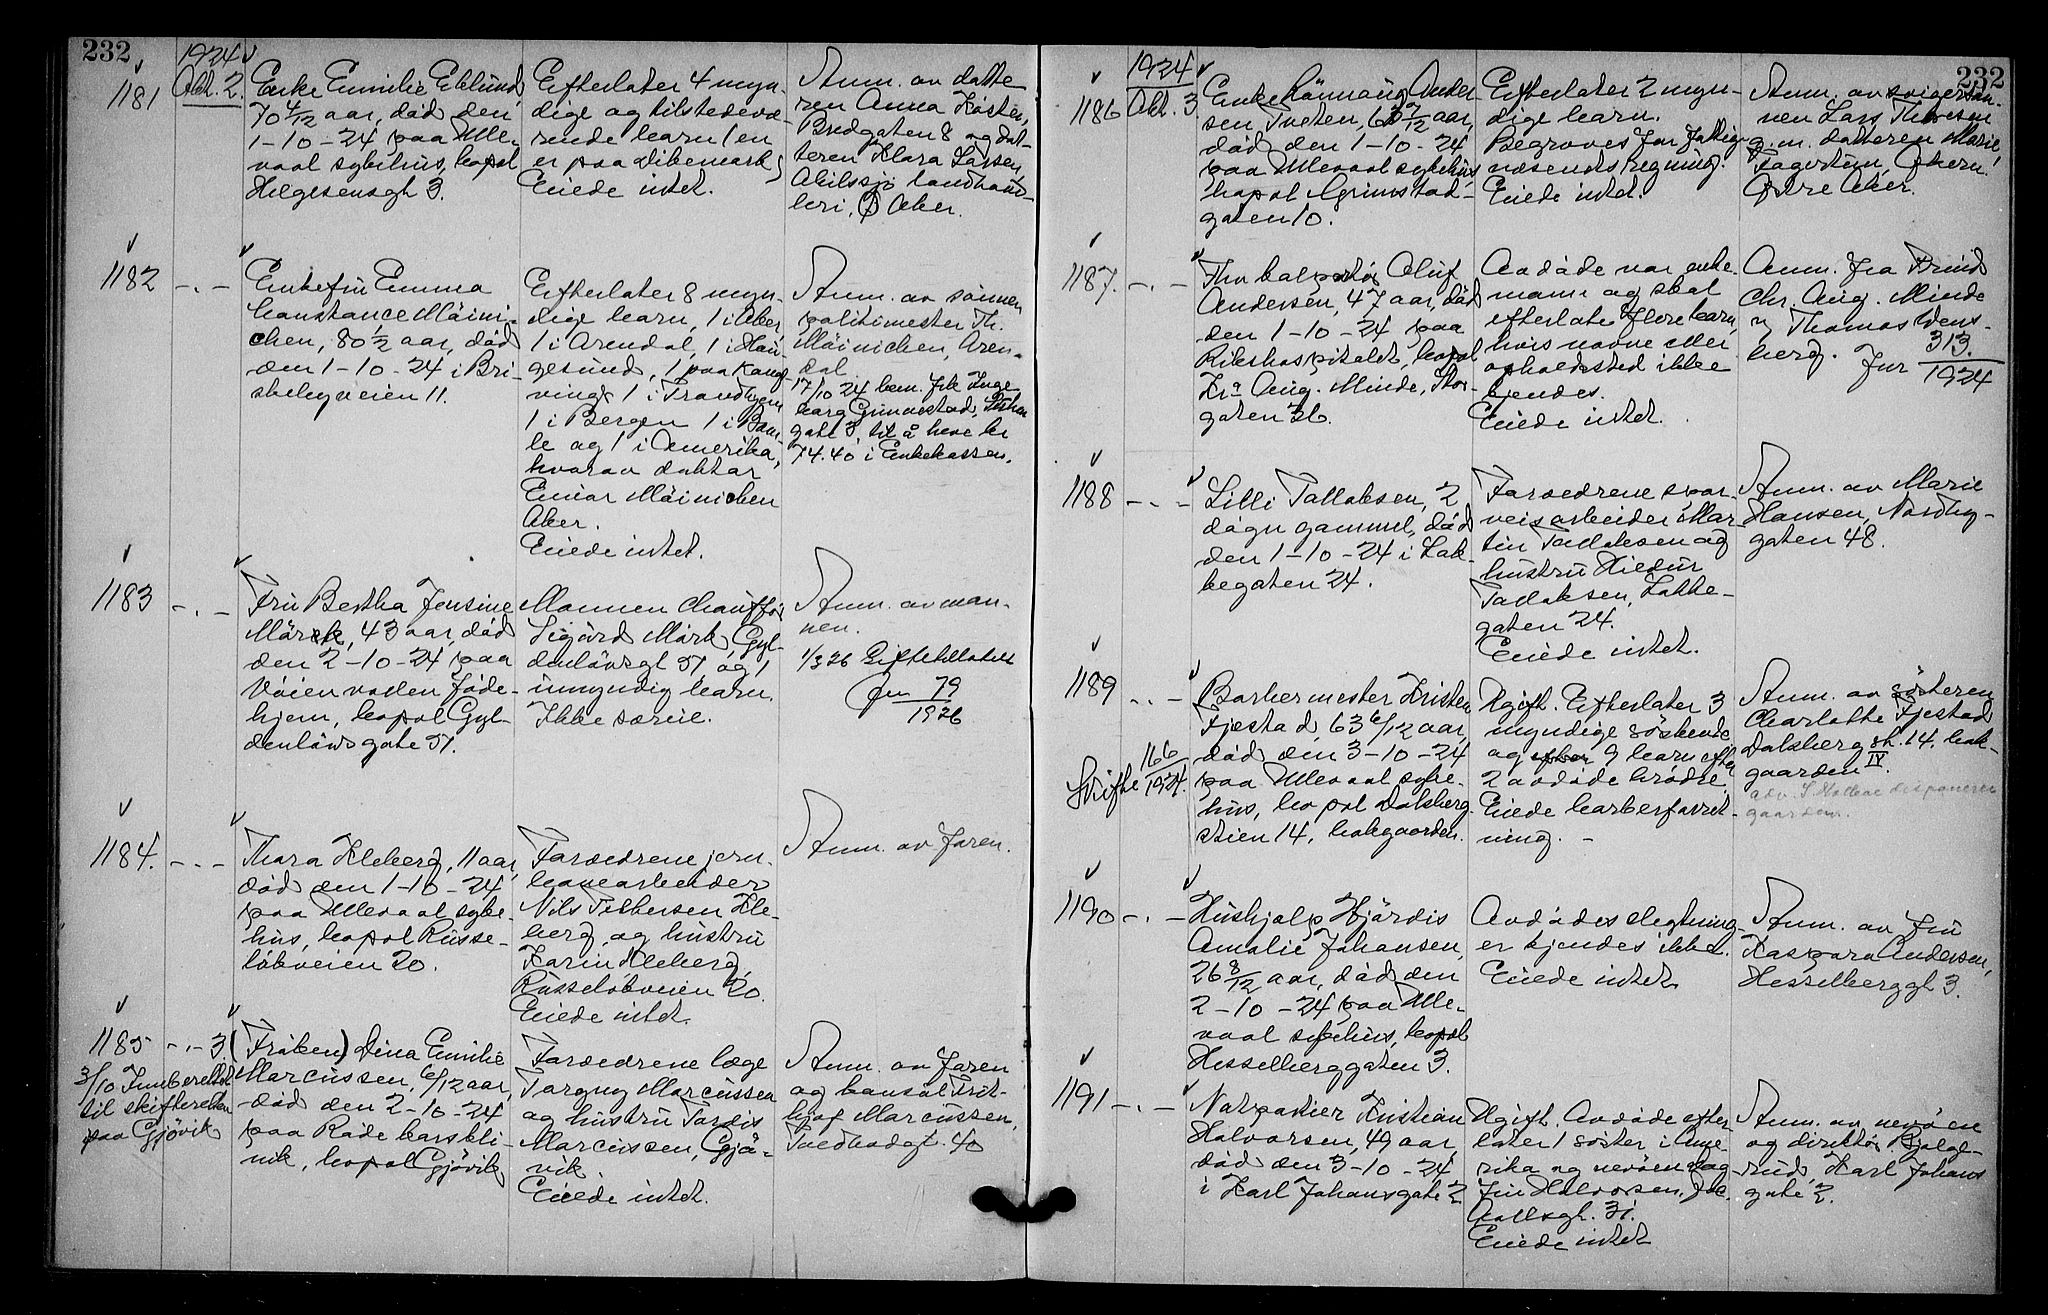 232
1924
1181
Okt. 2.
Enke Emilie Eklund
70 4/12 aar, död den
1-10-24 paa Ulle-
vaal sykehus, bopæl
Helgesensgt 3.
Efterlater 4 myn-
dige og tilstedevæ-
rende barn (en
er paa Dikemark)
Eiede intet.
Anm. av datte
ren Anna
Bredgaten 8 og dat-
teren Klara Larsen,
landhand-
leri, Ø Aker.
1182 -.-
Enkefru Emma
Constance Mäini-
chen, 80 1/2 aar, död
den 1-10-24 i Bri-
skebyveien 11.
Efterlater 8 myn-
dige barn, 1 i Aker
1 i Arendal, 1 i Hau-
gesund, 1 paa Kongs
vinger 1 i Trondhjem
1 i Bergen 1 i Bam-
le og 1 i Amerika,
hvorav doktor
Einar Mäinichen
Aker.
Eiede intet.
Anm. av sönnen
politimester Th.
Mäinichen, Aren-
dal
17/10 24 bem. fik Inge
borg Grimestad,
gate 3, til å heve kr
74.40 i Enkekassen.
1183 -.-
Fru Bertha Jensine
Mörk, 43 aar, död
den 2-10-24 paa
Vöienvolden föde-
hjem, bopæl Gyl-
denlövsgate 51.
Mannen chaufför
Sigurd Mörk, Gyl-
denlövsgt 51 og 1
umyndig barn.
Ikke særeie.
Anm. av man-
nen.
1/3 26 Giftetillatelse
Jnr 79
1926
1184. -.-
Thora Kleberg, 11 aar,
död den 1-10-24
paa Ullevaal syke-
hus, bopæl Russe-
lökveien 20.
Forældrene jern-
banearbeider
Nils Torbersen Kle-
berg, og hustru
Karin Kleberg
Russelökveien 20.
Eiede intet.
Anm. av faren.
1185 -.- 3.
3/10 Innberettet
til skifteretten
paa Gjövik
(Fröken) Dina Emilie
Marcussen, 6/12 aar,
död den 2-10-24
paa Röde kors kli-
nik, bopæl Gjövik
Forældrene læge
Torgny Marcussen
og hustru Tordis
Marcussen, Gjö-
vik
Eiede intet.
Anm. av faren
og konsul Frit-
hjof Marcussen,
Tvedtodgt. 40
232
1924
1186
Okt. 3.
Enke Lönnaug Ander-
sen Tveten, 63 7/12 aar,
död den 1-10-24
paa Ullevaal sykehus,
bopæl Grimstad-
gaten 10.
Efterlater 2 myn-
dige barn.
Begraves for fattig-
væsenets regning.
Eiede intet.
Anm. av svigersön-
nen Lars Thoresen
g.m. datteren Marie,
Fagertun, Økern
Östre Aker.
1187. -.-
Fhv kolportör Oluf
Andersen, 47 aar, död
den 1-10-24 paa
Rikshospitalet, bopæl
Kra Aug. Minde, Stor-
gaten 36.
Avdöde var enke
mann og skal
efterlate flere barn,
hvis navne eller
opholdssted ikke
kjendes.
Eiede intet.
Anm. fra Krist
Chr. Aug. Minde
v/ Thomas Wens-
berg.
Jnr 313.
1924
1188 -.-
Lilli Tallaksen, 2
dögn gammel, död
den 1-10-24 i Lak-
kegaten 24.
Forældrene spor-
veisarbeider Mar-
tin Tallaksen og
hustru Hildur
Tallaksen, Lakke-
gaten 24.
Eiede intet.
Anm. av Marie
Hansen, Nordby-
gaten 48.
1189 -.-
Skifte 166
1924.
Barbermester Kristen
Fjestad, 63 6/12 aar,
död den 3-10-24
paa Ullevaal syke-
hus, bopæl Dalsberg
stien 14, bakgaarden.
Ugift. Efterlater 3
myndige söskende
og efter 9 barn efter
2 avdöde brödre.
Eiede barberforret-
ning. -
Anm. av sösteren
Charlotte Fjestad
Dalsberg st. 14, bak-
gaarden IV.
1190 -.-
Hushjelp Hjördis
Amalie Johansen,
26 8/12 aar, död den
2-10-24 paa Ulle-
vaal sykehus, bopæl
Hesselberggaten 3.
Avdödes slegtning
er kjendes ikke.
Eiede intet
Anm. av fru
Kaspara Andersen,
Hesselberggt 3.
1191 -.-
Natportier Kristian
Halvorsen, 49 aar,
död den 3-10-24
i Karl Johansgate 2
Ugift. Avdöde efter
later 1 söster i Ame
rika og nevöen Dag
Finn Halvorsen,
gt. 31.
Eiede intet
Anm. av nevöen
og direktör Bjölge-
rud, Karl Johans
gate 2.